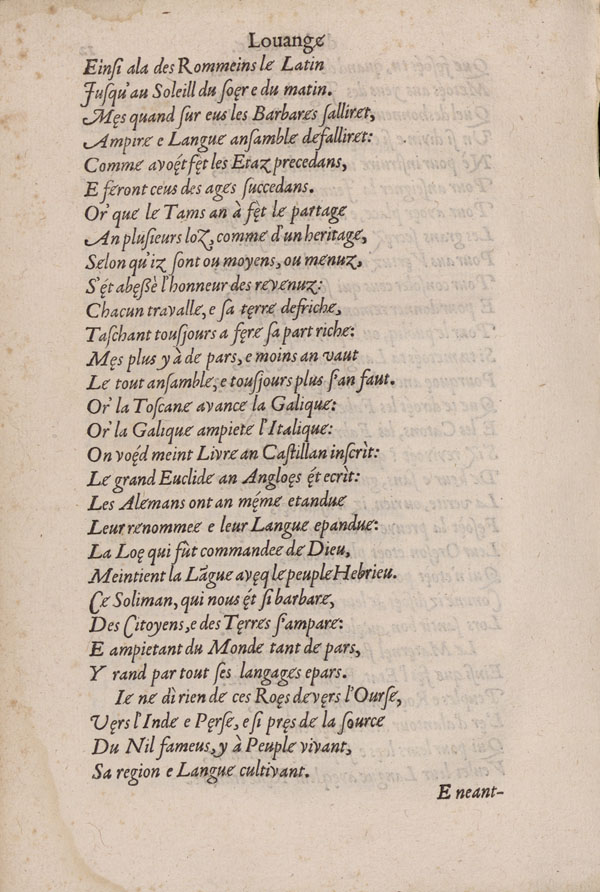 Louange
Einſi ala des Rommeins le Latin
Juſqu'au Soleill du ſoęr e du matin.
Męs quand ſur eus les Barbares ſalliret,
Ampire e Langue anſamble defalliret:
Comme avoę́t fę́t les Etaz precedans,
E feront ceus des ages ſuccedans.
Or' que le Tams an à fę́t le partage
An pluſieurs loz, comme d'un heritage,
Selon qu'iz ſont ou moyens, ou menuz,
S'ę́t abęſſè l'honneur des revenuz:
Chacun travalle, e ſa tęrre defriche,
Taſchant touſjours a fęre ſa part riche:
Męs plus y à de pars, e moins an vaut
Le tout anſamble, e touſjours plus ſ'an faut.
Or' la Toſcane avance la Galique:
Or' la Galique ampiete l'Italique:
On voę́d meint Livre an Caſtillan inſcrìt:
Le grand Euclide an Angloęs ę́t ecrìt:
Les Alemans ont an mę́me etandue
Leur renommee e leur Langue epandue:
La Loę qui fùt commandee de Dieu,
Meintient la Lãgue avęq le peuple Hebrieu.
Ce Soliman, qui nous ę́t ſi barbare,
Des Citoyens, e des Tęrres ſ'ampare:
E ampietant du Monde tant de pars,
Y rand par tout ſes langages epars.
Ie ne dì rien de ces Roęs devęrs l'Ourſe,
Vęrs l'Inde e Pęrſe, e ſi pręs de la ſource
Du Nil fameus, y à Peuple vivant,
Sa region e Langue cultivant.
E neant-